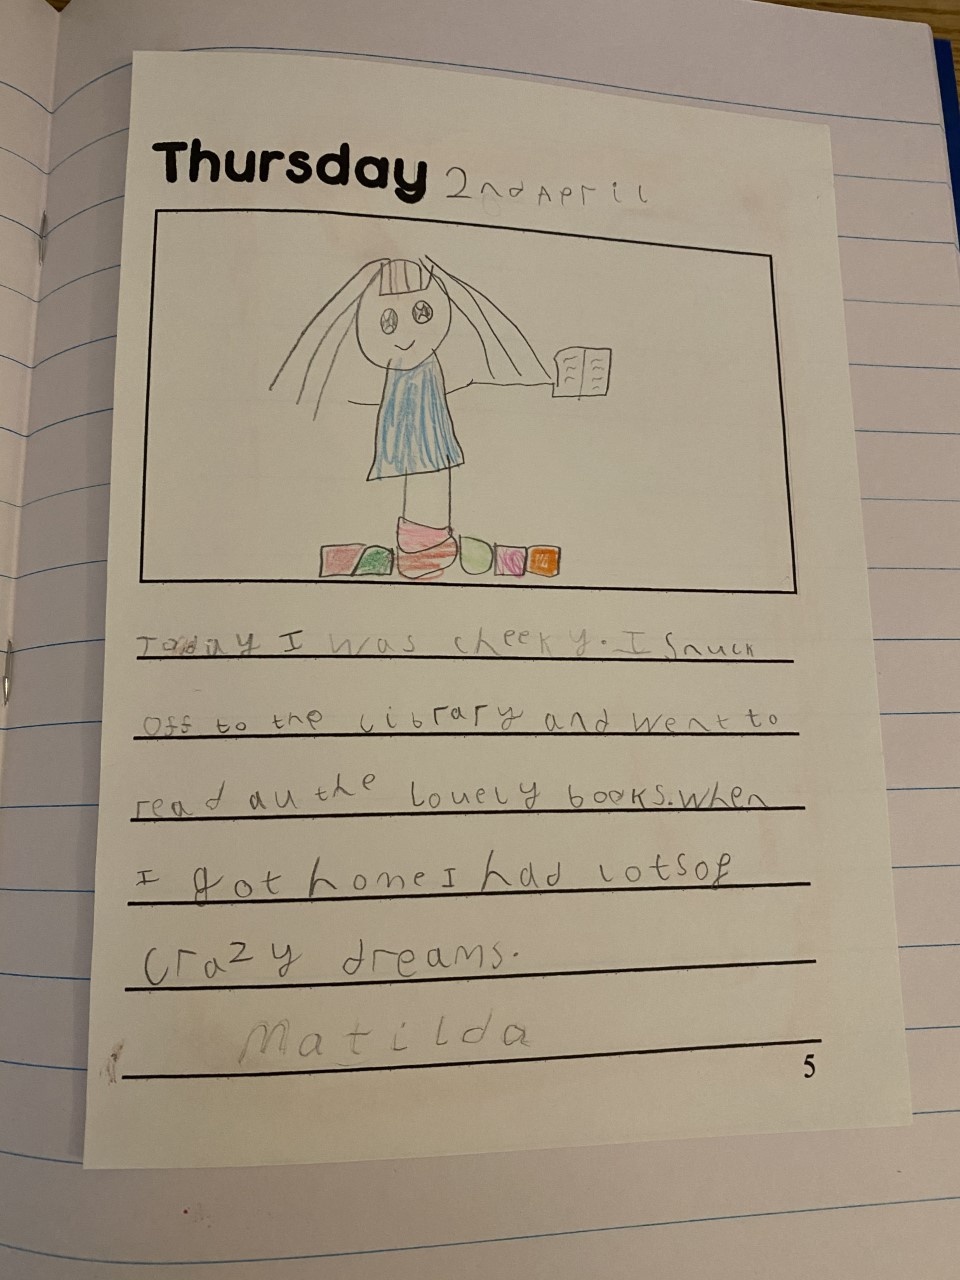 Thursday 2nd April
Today I was cheeky. I Snuck
Off to the library and went to
read all the lovely books. when
I got home I had lots of
Crazy dreams.
Matilda
5